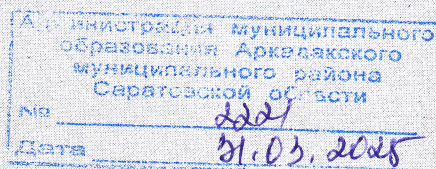 Администрация муниципального
образования Аркадакского
муниципального района
Саратовской области
№ 2221
Дата 31.03.2025